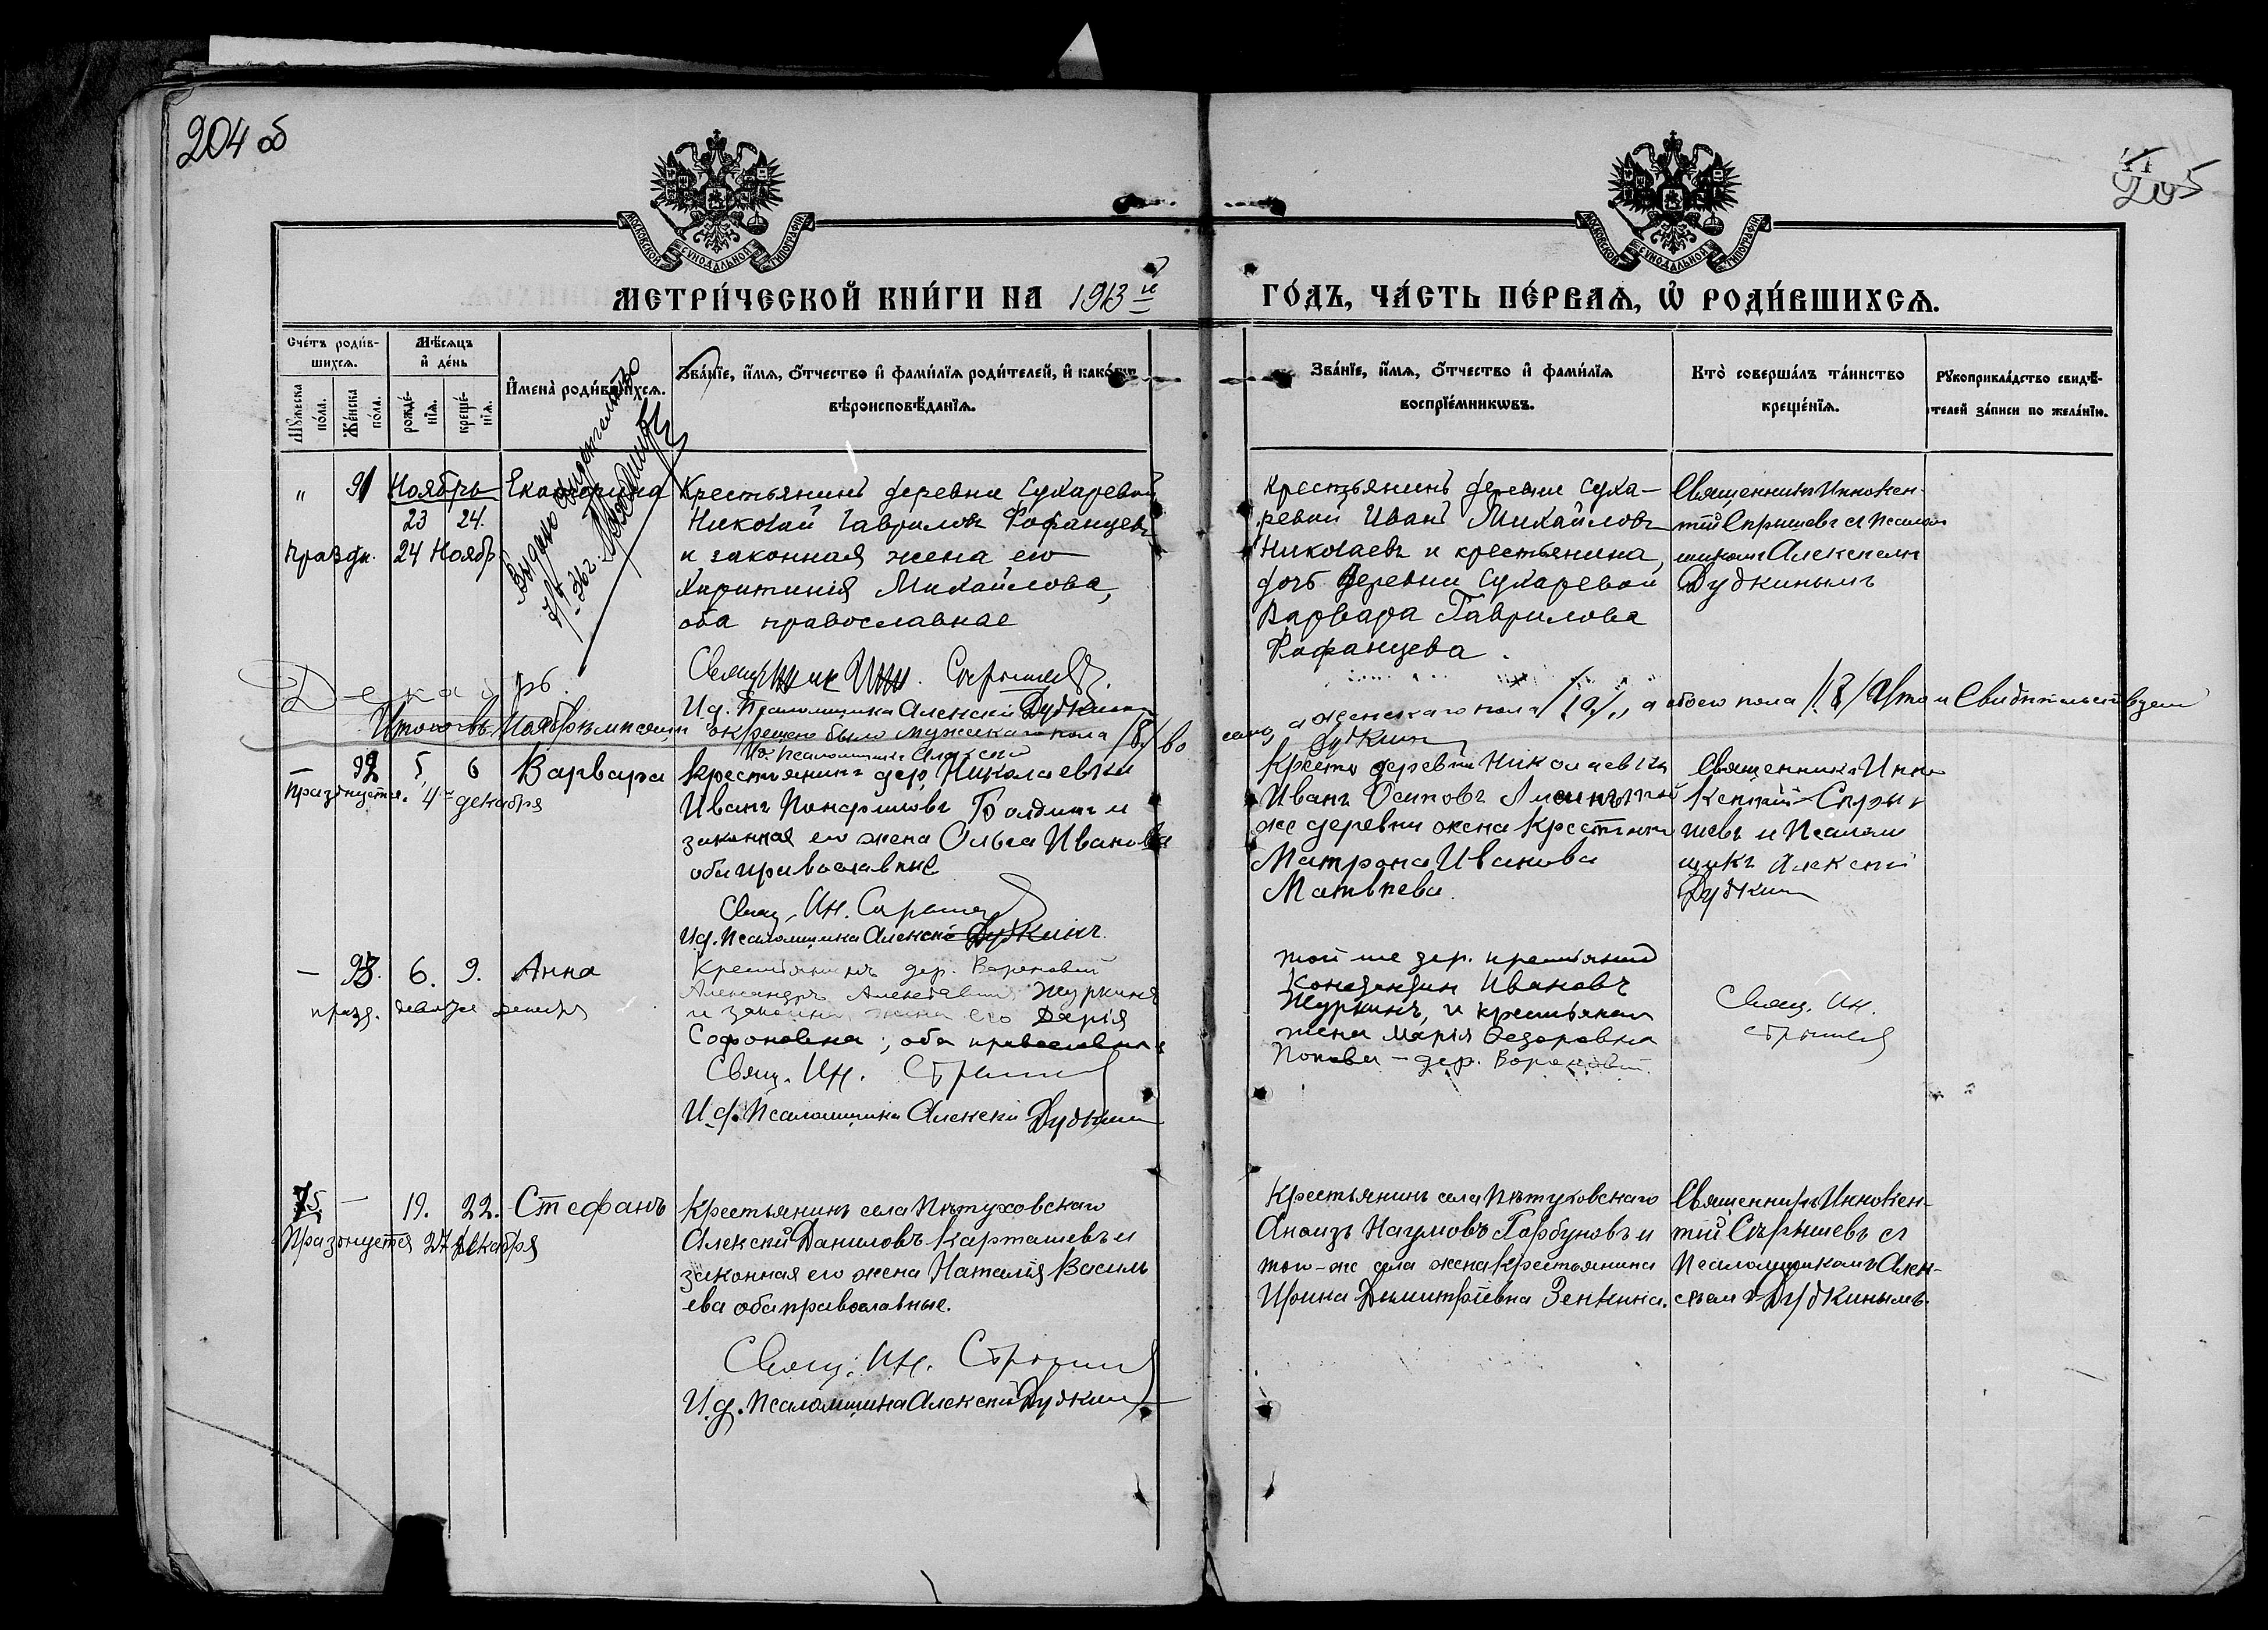 204 об
205
МОСКОВСКОЙ СУНОДАЛЬНОЙ ТИПОГРАФІИ
МОСКОВСКОЙ СУНОДАЛЬНОЙ ТИПОГРАФІИ
МЕТРИ́ЧЕСКОЙ КНИ́ГИ НА 1913 й
ГО́ДЪ, ЧА́СТЬ ПЕ́РВАЯ, Ѽ РОДИ́ВШИХСЯ.
Сче́тъ роди́в-
шихся.
Мѣ́сяцъ
и де́нь
Му́жеска по́ла.
Же́нска по́ла.
рожде́-
нїя.
креще́-
нїя.
Имена̀ роди́вшихся.
Зва́нїе, и́мя, о́тчество и фами́лїя роди́телей, и како́гѡ
вѣроисповѣ́данїя.
Зва́нїе, и́мя, о́тчество и фами́лїя
воспрїе́мникѡвъ.
Кто̀ соверша́лъ та́инство
креще́нїя.
Рукоприкла́дство свидѣ́-
телей за́писи по жела́нїю.
Выдано свидетельство
" 91 Ноябрь Екатерина
23 24.
Праздн. 24 Нояб
Крестьянинъ деревни Сухаревой
Николай Гавриловъ Фофанцевъ
и законная жена его
Харитинія Михайлова,
оба православные
Священник Инн. Стрышевъ.
И.д. Псаломщика Алексѣй Дудкинъ
Крестьянинъ деревни Суха-
ревой Иванъ Михайловъ
Николаевъ и крестьянина
дочь деревни Сухаревой
Варвара Гаврилова
Фофанцева.
Священникъ Иннокен-
тій Стрышевъ съ Псалом
щикомъ Алексѣемъ
Дудкинымъ
Декабрь.
Итого въ Ноябрѣ мѣсяцѣ окрещено было мужскаго пола /8/ во
а женскаго пола /10/, а обоего пола /18/ Что и Свидѣтельствуем
И.д. Псаломщика Алексѣй
Дудкинъ
— 92 5 6 Варвара
Празднуется 4го декабря
Крестьянинъ дер. Николаевки
Иванъ Панфиловъ Болдинъ и
законная его жена Ольга Иванова
оба православные
Свящ. Ин. Стрышевъ
И.д. Псаломщика Алексѣй Дудкинъ.
Кресть деревни Николаевки
Иванъ Осиповъ
же деревни жена Крестьянина
Матрона Иванова
Матвѣева.
Священникъ Инно
кентій Стры
шевъ и Псалом
щикъ Алексѣй
Дудкин
— 93. 6. 9. Анна
празд. девятаго декабря
Крестьянинъ дер. Вороновой
Александръ Алексѣевичъ Журкинъ
и законная жена его Дарія
Софоновна; оба православные
Свящ. Ин. Стрышев
И.д. Псаломщика Алексѣй Дудкин
той же дер. крестьянин
Константин Ивановъ
Журкинъ, и крестьянка
жена Марія Федоровна
Попова — дер. Вороновой.
Свящ. Ин.
Стрышев
75. — 19. 22. Стефанъ
Празднуется 27 декабря
Крестьянинъ села Пѣтуховскаго
Алексѣй Даниловъ Карташевъ и
законная его жена Наталія Василь
ева оба православные.
Свящ. Ин. Стрышев
И.д. Псаломщика Алексѣй Дудкин
Крестьянинъ села Пѣтуховскаго
Наумовъ Горбуновъ и
того-же села жена крестьянина
Ирина Димитріевна Зенкина.
Священникъ Иннокен-
тій Стрышевъ съ
Псаломщикомъ Алек-
сѣемъ Дудкинымъ.